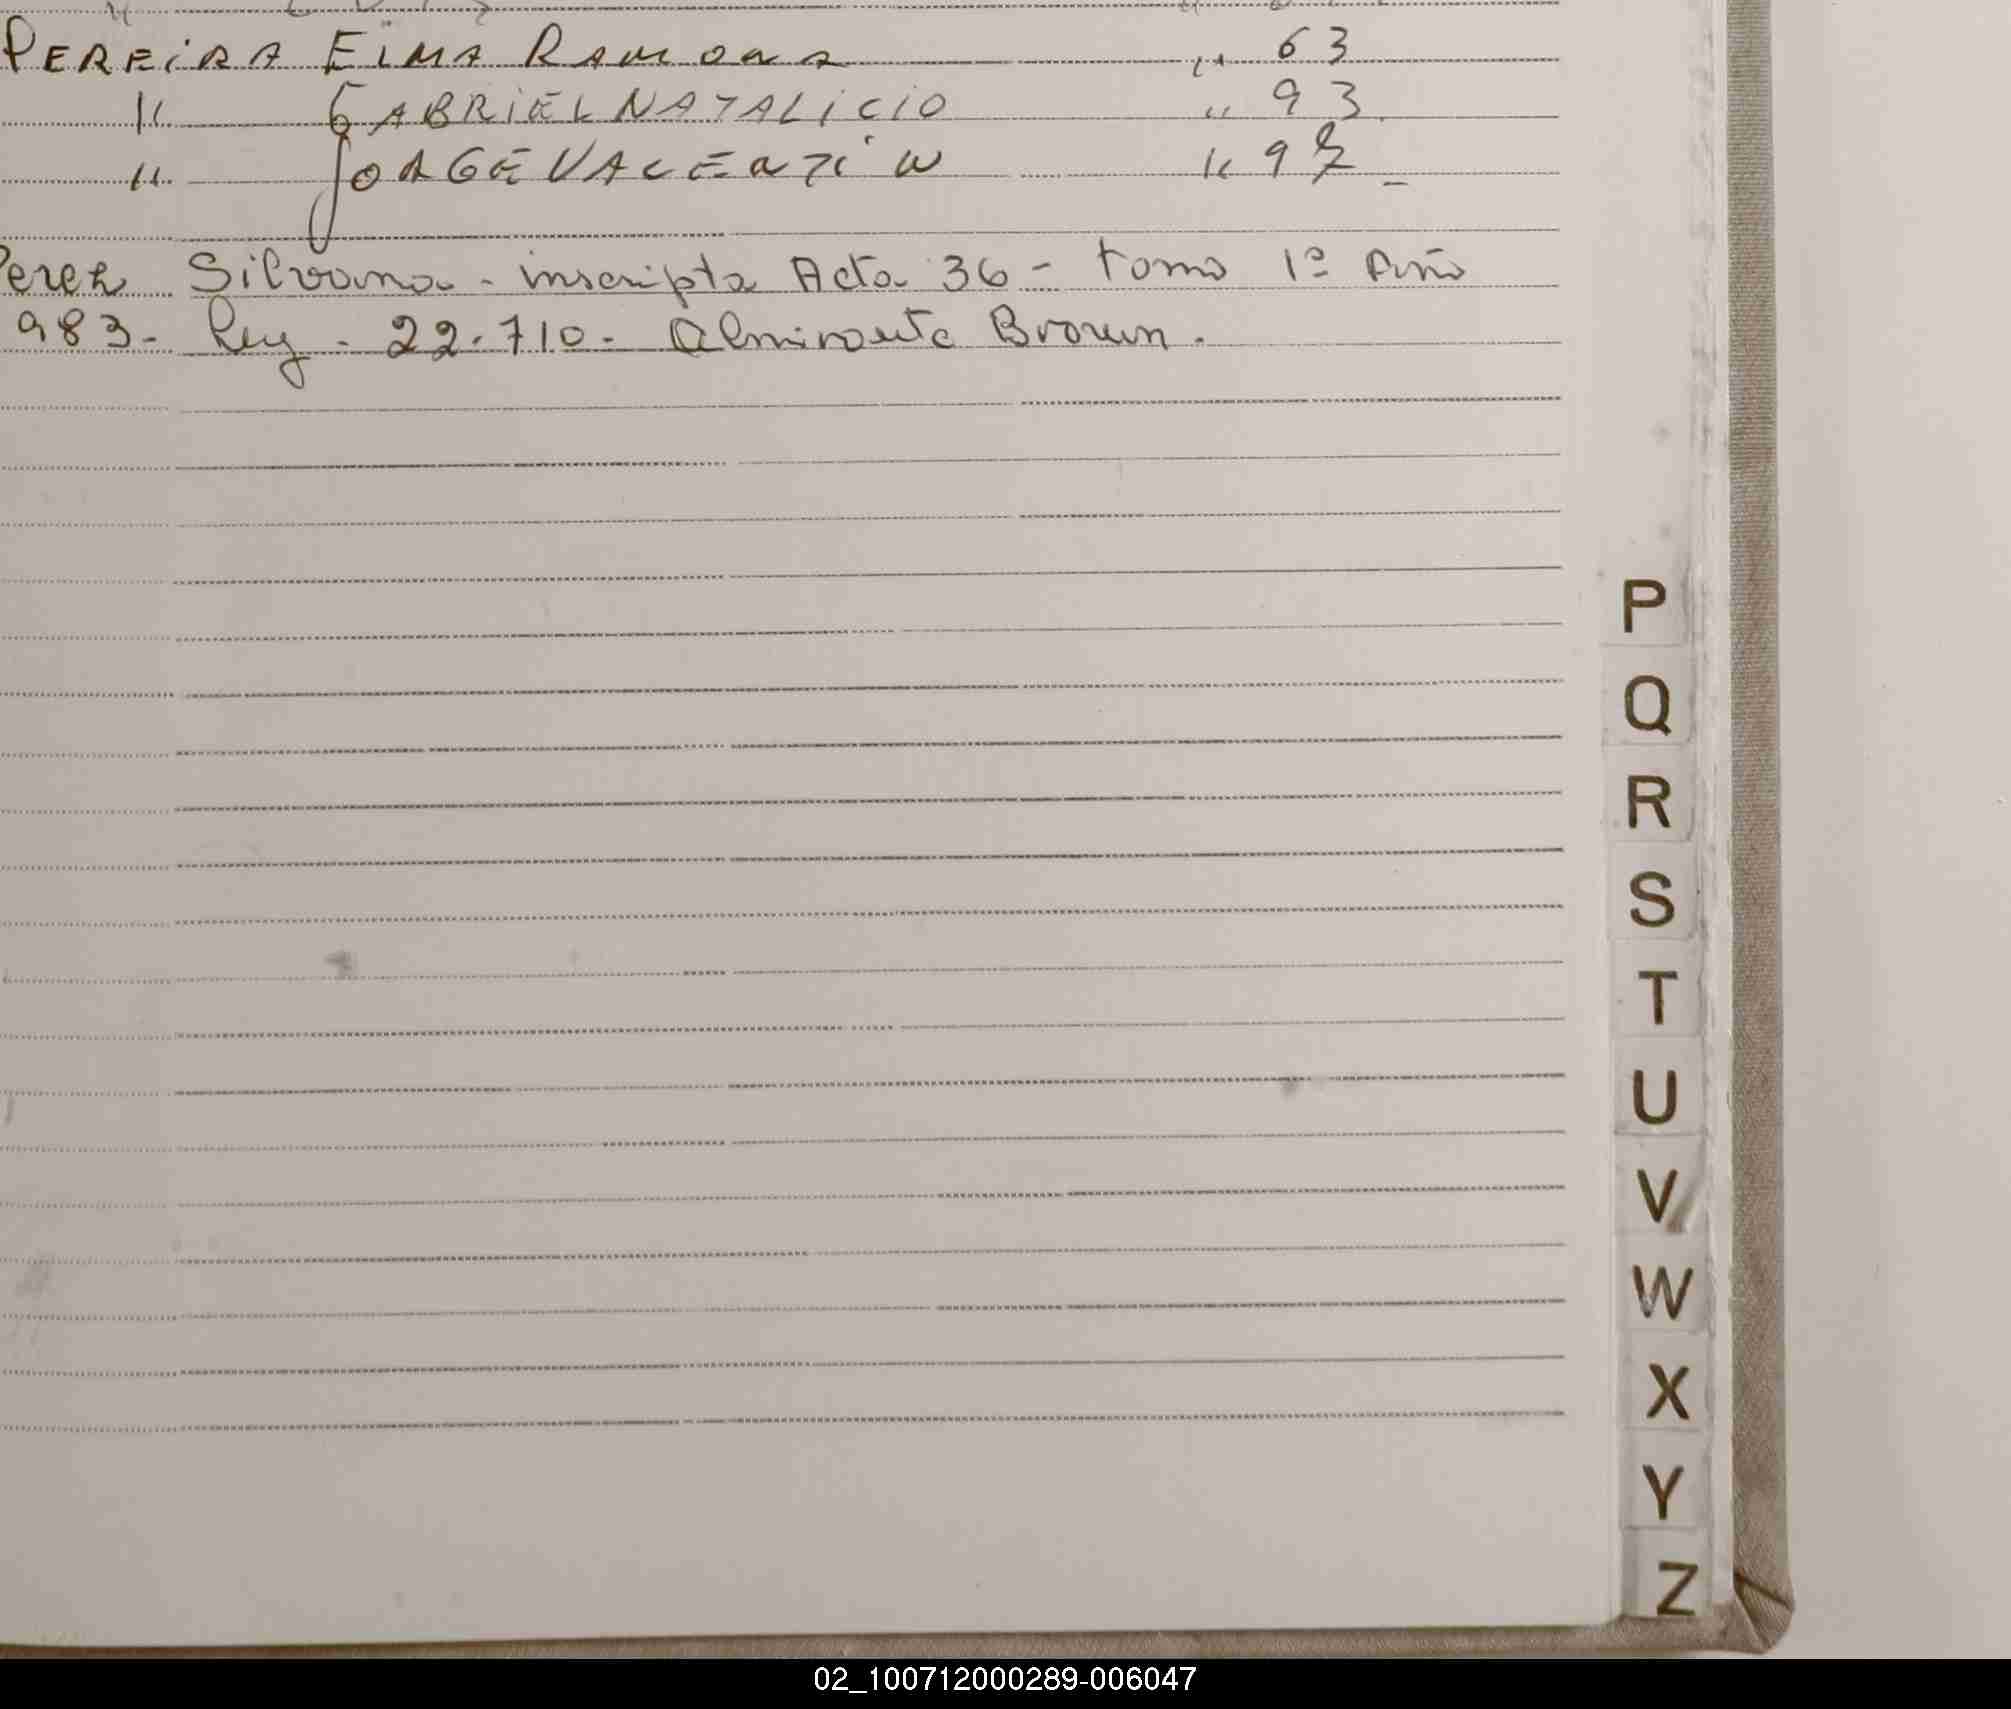 PEREIRA ELMA RAMONA " 63
" GABRIEL NATALICIO " 93.
" JORGE VALENTIN " 9
Perez Silvana - inscripta Acta 36 - tomo 1º Año
983 - Ley - 22.710 - Almirante Brown.
P
Q
R
S
T
U
V
W
X
Y
Z
02_100712000289-006047